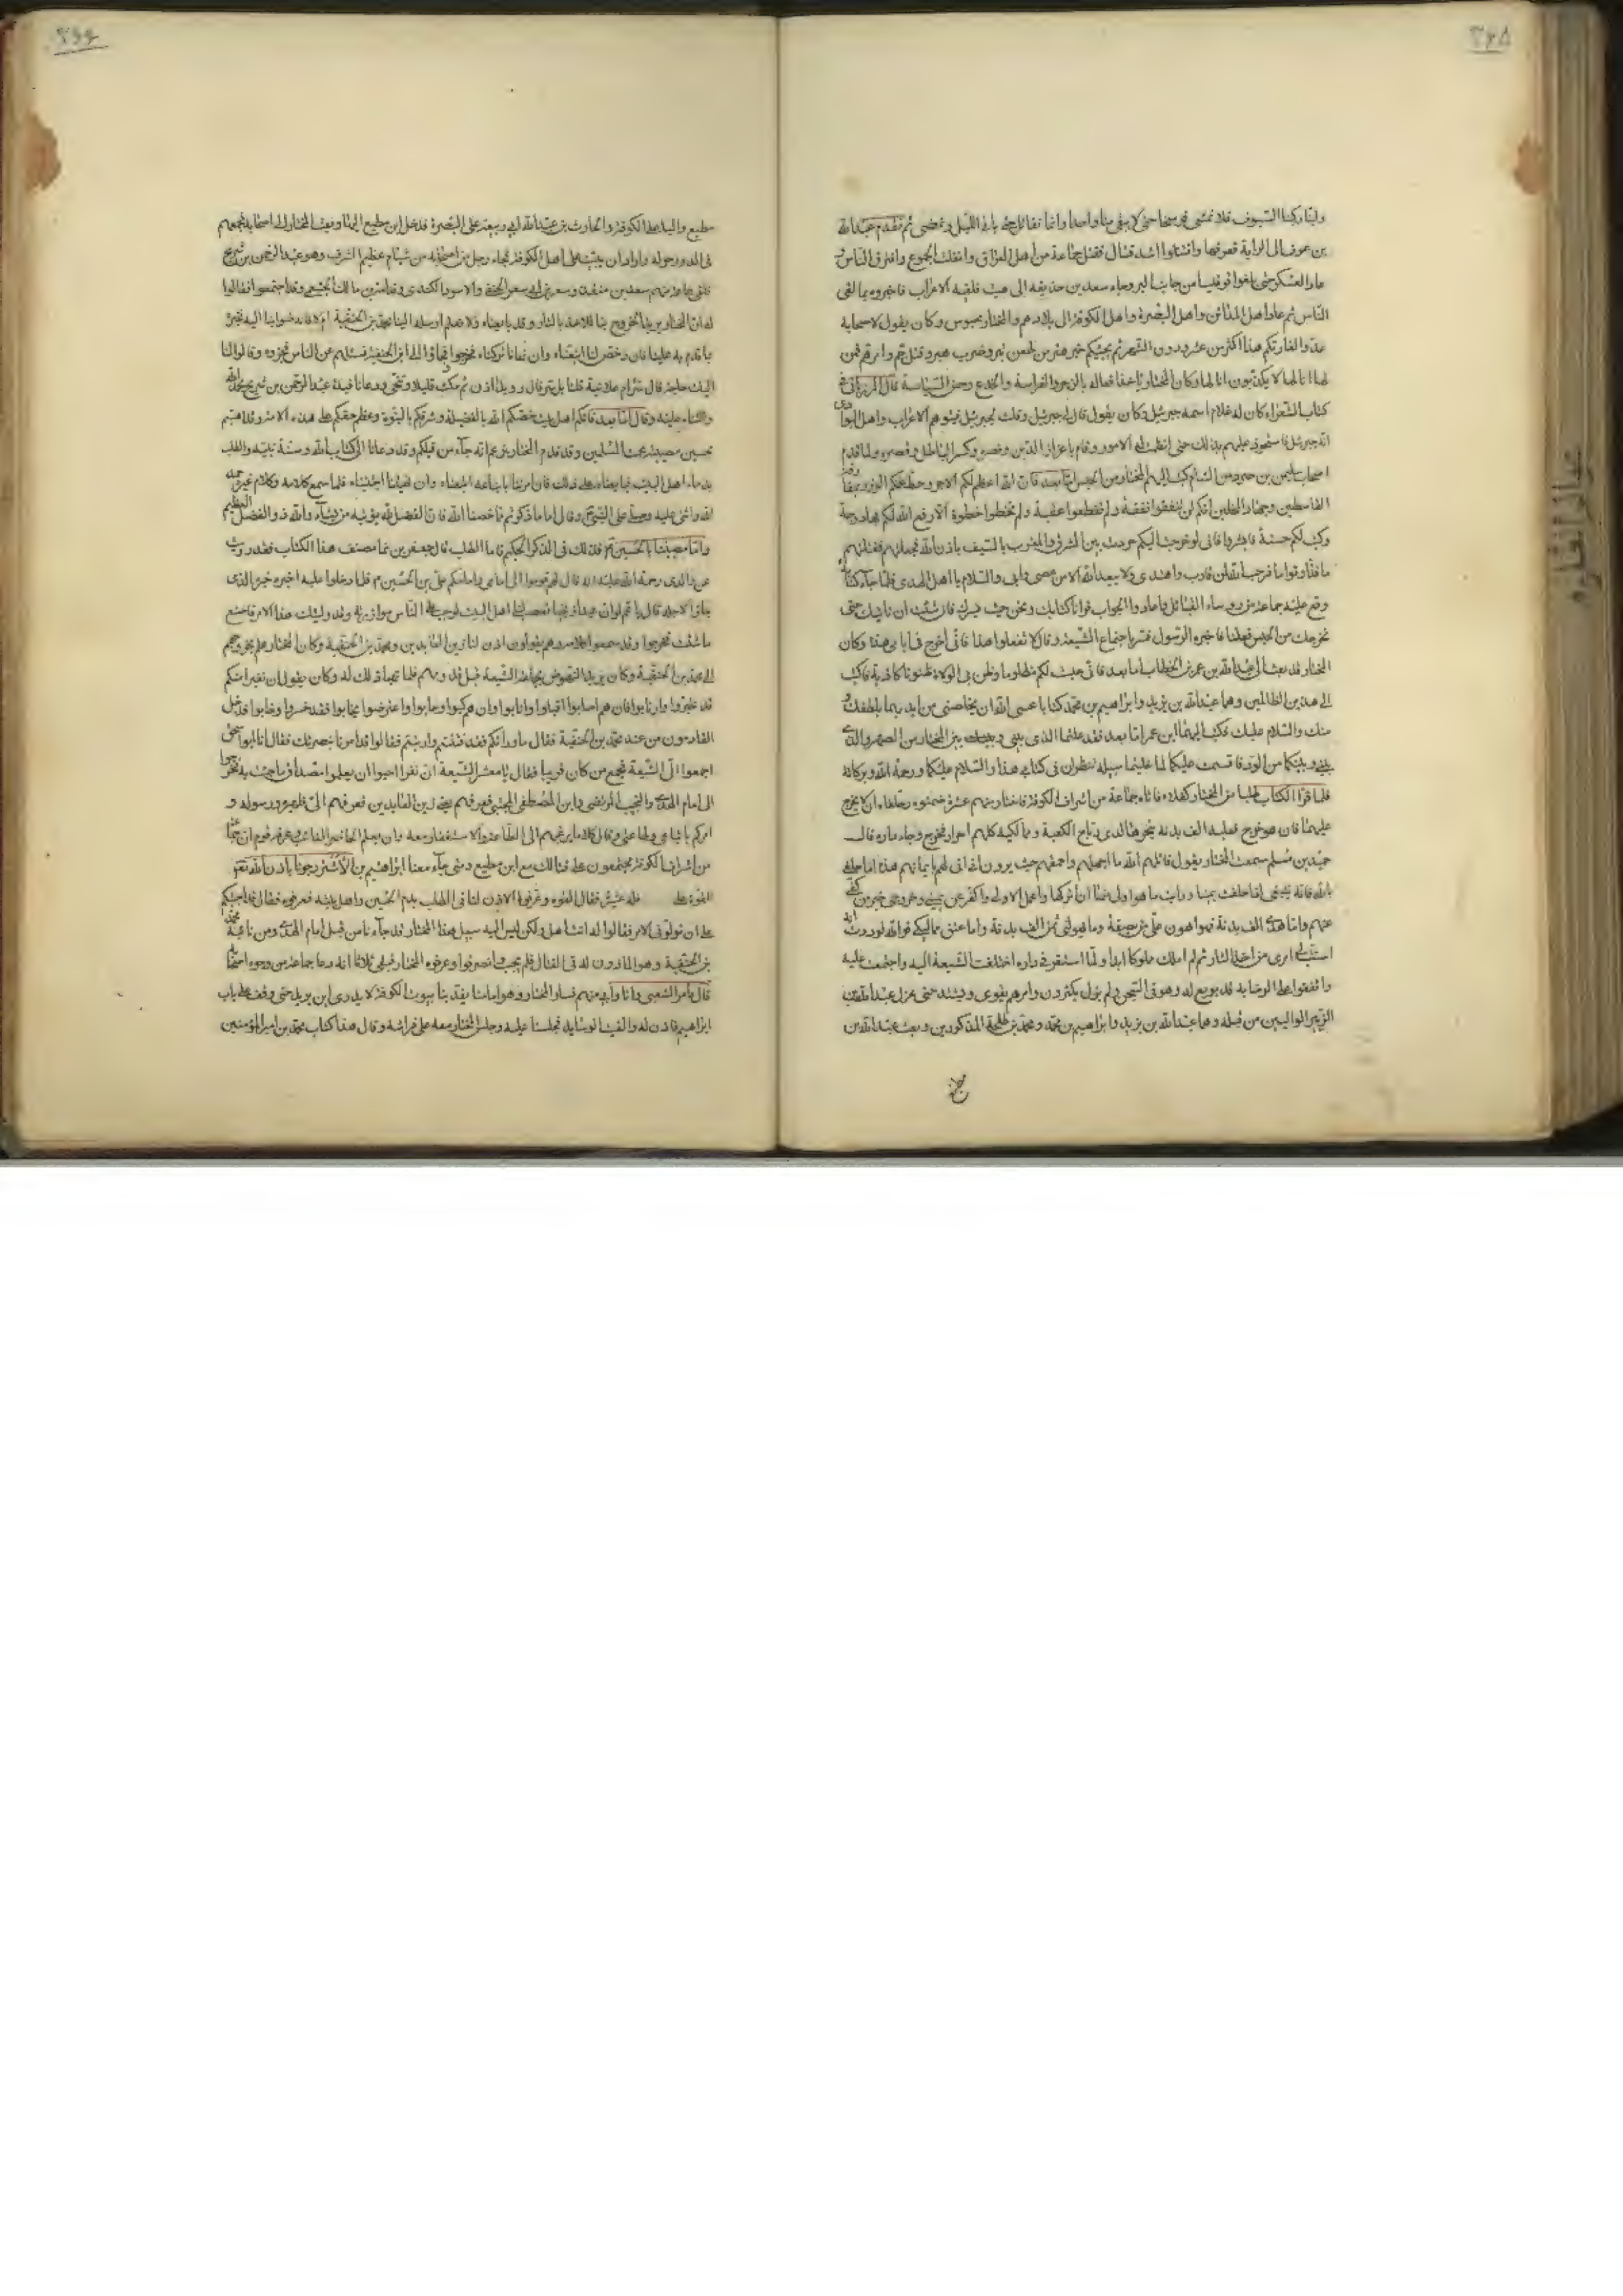 ٢٦٥
ولنا وكبنا السيوف فلا نمشى فرسخا حتى لا يبقى منا واحد وانما نقاتل حتى يأتى الليل ونمضى ثم تقدم عبدالله
بن عوف الى الراية فعرفها واقتتلوا اشد قتال فقتل جماعة من اهل العراق وانفلت الجموع وافترق الناس و
عاد العسكر حتى بلغوا قرقيسا من جانب البر وجاء سعد بن حذيفه الى هيت فلقيه الاعراب فاخبروه بما لقى
الناس ثم عاد اهل المدائن واهل البصرة واهل الكوفة الى بلادهم والمختار محبوس وكان يقول لاصحابه
عدوا لغارتكم هذا اكثر من عشر ودون الشهر ثم يجيئكم خبر هتر من طعن تبر وضرب هبر وقتل جم وامر رجم فمن
لها انا لها لا يكذبون انا لها وكان المختار ياخذ افعاله بالزجر والفراسة والخدع وحسن السياسة قال المرزبانى فى
كتاب الشعراء كان له غلام اسمه جبرئيل وكان يقول قال لى جبرئيل وقلت لجبرئيل فيتوهم الاعراب واهل البوادى
انه جبرئيل فاستحوذ عليهم بذلك حتى انتظمت له الامور وقام باعزاز الدين ونصره وكسر الباطل وقصره ولما قدم
اصحاب سليمن بن صرد من الشام كتب اليهم المختار من الحبس اما بعد فان الله اعظم لكم الاجر وحط عنكم الوزر بمفارقة
القاسطين وجهاد المحلين انكم لن تنفقوا نفقة ولم تقطعوا عقبة ولم تخطوا خطوة الا رفع الله لكم بها درجة
وكتب لكم حسنة فابشروا فانى لو خرجت اليكم جردت بين المشرق والمغرب بالسيف باذن الله فجعلتهم
فرحب الله لمن قارب واهتدى ولا يبعد الله الا من عصى وابى والسلام يا اهل الهدى فلما جاء كتابه
وقع عليه جماعة من رؤساء القبائل واعادوا الجواب قرانا كتابك ونحن حيث يسرك فان شئت ان ناتيك حتى
نخرجك من الحبس فعلنا فاخبره الرسول فسر باجتماع الشيعة وقال لا تفعلوا هذا فانى اخرج فى ايامى هذه وكان
المختار قد بعث الى عبدالله بن عمر بن الخطاب اما بعد فانى حبست لكم مظلوما وظن بى الولاة ظنونا كاذبة فاكتب
الى هذين الظالمين وهما عبدالله بن يزيد وابراهيم بن محمد كتابا عسى الله ان يخلصنى من ايديهما بلطفك و
منك والسلام عليك فكتب اليهما ابن عمر اما بعد فقد علمتما الذى بينى وبين المختار من الصهر والذى
بينى وبينكما من الود فاقسمت عليكما لما خليتما سبيله تنظران فى كتابى هذا والسلام عليكما ورحمة الله وبركاته
فلما قرآ الكتاب طلبا من المختار كفلاء فاتاه جماعة من اشراف الكوفة فاختار منهم عشرة ضمنوه وحلفاه ان لا يخرج
عليهما فان هو خرج فعليه الف بدنة ينحرها لدى رتاج الكعبة ومماليكه كلهم احرار فخرج وجاء داره قال
حميد بن مسلم سمعت المختار يقول قاتلهم الله ما اجهلهم واحمقهم حيث يرون انى افى لهم بايمانهم هذه اما حلفى
بالله فانه ينبغى اذا حلفت يمينا ورايت ما هو اولى منها ان اتركها واعمل الاولى واكفر عن يمينى وخروجى خير من كفى
عنهم واما هدى الف بدنة فهو اهون على من بصقة وما يهولنى ثمن الف بدنة واما عتق مماليكى فوالله لوددت انه
استتب لى امرى من اخذ الثار ثم لم املك مملوكا ابدا ولما استقر فى داره اختلفت الشيعة اليه واجتمعت عليه
واتفقوا على الرضا به قد بويع له وهو فى السجن ولم يزل يكثرون وامرهم يقوى ويشتد حتى عزل عبدالله بن
الزبير الواليين من قبله وهما عبدالله بن يزيد وابراهيم بن محمد ومحمد بن طلحة المذكورين وبعث عبدالله بن
مطيع
٢٦٦
مطيع واليا على الكوفة والحارث بن عبدالله ابى ربيعة على البصرة فدخل ابن مطيع اليها وبعث المختار الى اصحابه فجمعهم
فى الدور حوله واراد ان يثب على اهل الكوفة فجاء رجل من اصحابه من شبام عظيم الشرف وهو عبدالرحمن بن شريح
فلقى جماعة منهم سعد بن منقذ وسعر بن ابى سعر الحنفى والاسود الكندى وقدامة بن مالك الجشمى وقد اجتمعوا فقالوا
له ان المختار يريد الخروج بنا للاخذ بالثار وقد بايعناه ولا نعلم ارسله الينا محمد بن الحنفية ام لا فانهضوا بنا اليه نخبره
بما قدم به علينا فان رخص لنا اتبعناه وان نهانا تركناه فخرجوا وجاؤا الى ابن الحنفية فسئلهم عن الناس فخبروه وقالوا لنا
اليك حاجة قال سر ام علانية قلنا بل سر قال رويدا اذن ثم مكث قليلا وتنحى ودعانا فبدأ عبدالرحمن بن شريح بحمد الله
والثناء عليه وقال اما بعد فانكم اهل بيت خصكم الله بالفضيلة وشرفكم بالنبوة وعظم حقكم على هذه الامة وقد اصبتم
بحسين مصيبة عمت المسلمين وقد قدم المختار يزعم انه جاء من قبلكم وقد دعانا الى كتاب الله وسنة نبيه والطلب
بدماء اهل البيت فبايعناه على ذلك فان امرتنا باتباعه اتبعناه وان نهيتنا اجتنبناه فلما سمع كلامه وكلام غيره حمد
الله واثنى عليه وصلى على النبى وقال اما ما ذكرتم مما خصنا الله فان الفضل لله يؤتيه من يشاء والله ذو الفضل العظيم
واما مصيبتنا بالحسين فذلك فى الذكر الحكيم فاما الطلب قال جعفر بن نما مصنف هذا الكتاب فقد رويت
عن والدى رحمة الله عليه انه قال لهم قوموا الى امامى وامامكم على بن الحسين م فلما دخلوا عليه اخبره خبر الذى
جاؤا لاجله قال يا عم لو ان عبدا زنجيا تعصب لنا اهل البيت لوجب على الناس موازرته وقد وليتك هذا الامر فاصنع
ما شئت فخرجوا وقد سمعوا كلامه وهم يقولون اذن لنا زين العابدين ومحمد بن الحنفية وكان المختار علم بخروجهم
الى محمد بن الحنفية وكان يريد النهوض بجماعة الشيعة قبل قدومهم فلما تهيا ذلك له وكان يقول ان نفيرا منكم
قد تحيروا وارتابوا فان هم اصابوا اقبلوا وانابوا وان هم كبوا وهابوا واعترضوا وانجابوا فقد خسروا وخابوا فدخل
القادمون من عند محمد بن الحنفية فقال ما وراءكم فقد فتنتم وارتبتم فقالوا قد امرنا بنصرتك فقال انا ابو اسحق
اجمعوا الى الشيعة فجمع من كان قريبا فقال يا معشر الشيعة ان نفرا احبوا ان يعلموا مصداق ما جئت به فخرجوا
الى امام الهدى والنجيب المرتضى وابن المصطفى المجتبى فعرفهم انى ظهيره ورسوله و
امركم باتباعى وطاعتى وقال كلاما يرغبهم الى الطاعة والاستنفار معه وان يعلم الحاضر الغائب وعرفه قوم ان جماعة
من اشراف الكوفة مجتمعون على قتالك مع ابن مطيع ومتى جاء معنا ابراهيم بن الاشتر رجونا باذن الله تعالى
القوة على فله عشيرة فقال القوه وعرفوه الاذن لنا فى الطلب بدم الحسين واهل بيته فعرفوه فقال قد اجبتكم
على ان تولونى الامر فقالوا له انت اهل ولكن ليس اليه سبيل هذا المختار قد جاءنا من قبل امام الهدى ومن نائبه محمد
بن الحنفية وهو الماذون له فى القتال فلم يجب وانصرفوا وعرفوه المختار فبقى ثلاثا ثم انه دعا جماعة من وجوه اصحابه
قال عامر الشعبى وانا وابى منهم فسار المختار وهو امامنا يقد بنا بيوت الكوفة لا يدرى اين يريد حتى وقف على باب
ابراهيم فاذن له والقيت الوسايد فجلسنا عليها وجلس المختار معه على فراشه وقال هذا كتاب محمد بن امير المؤمنين